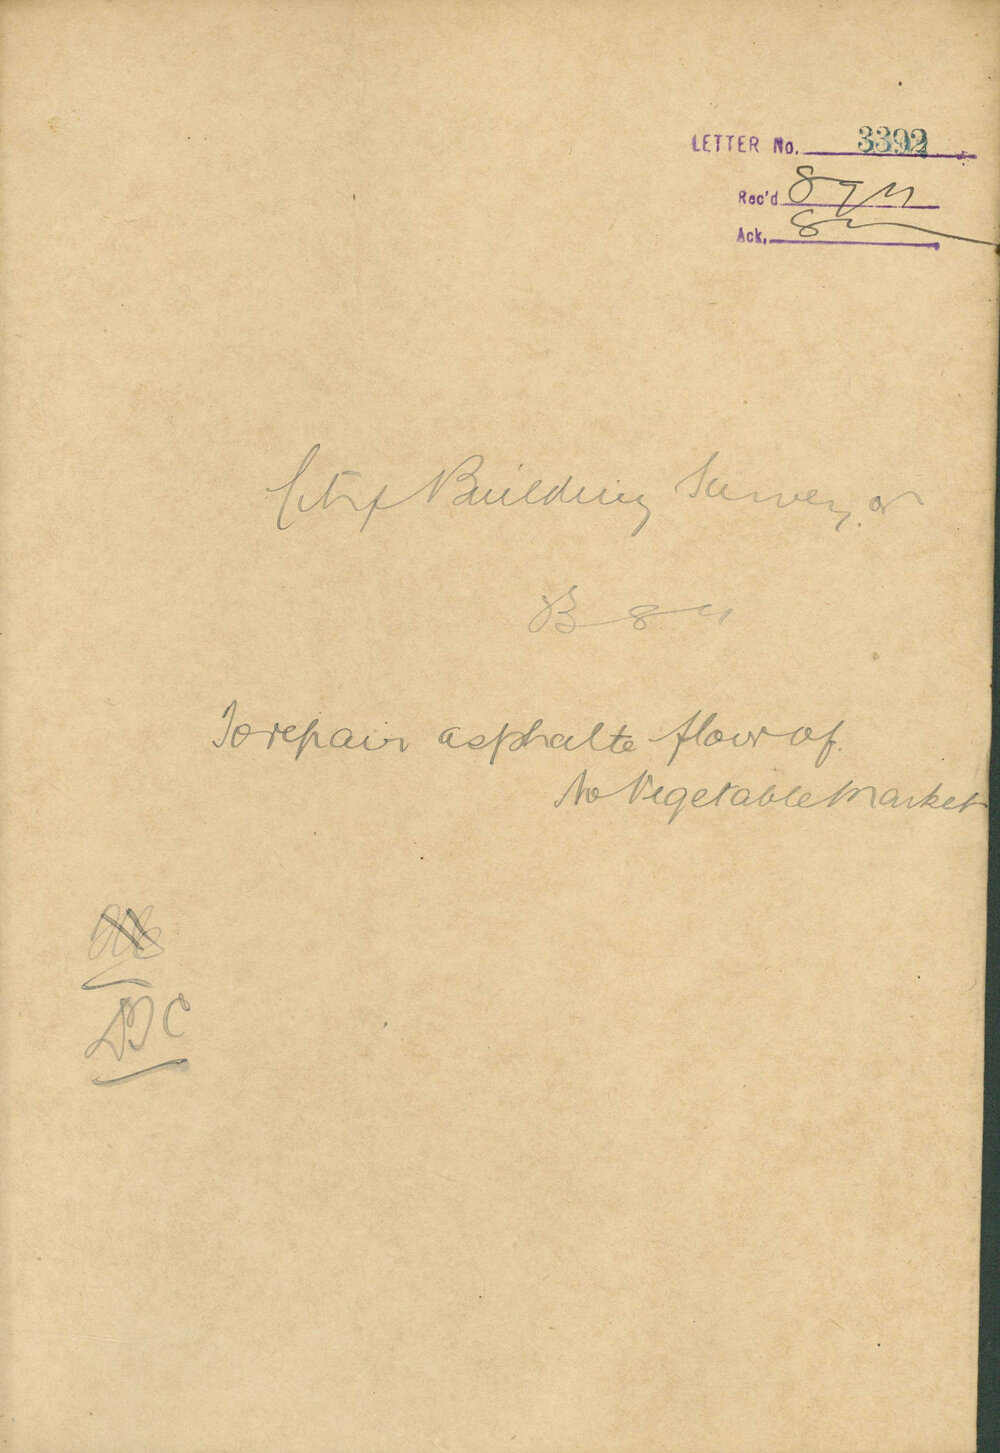 LETTER No. 3392
Rec'd 8
Ack, 8
City Building Surveyor
B
To repair asphalte floor of
Vegetable Market